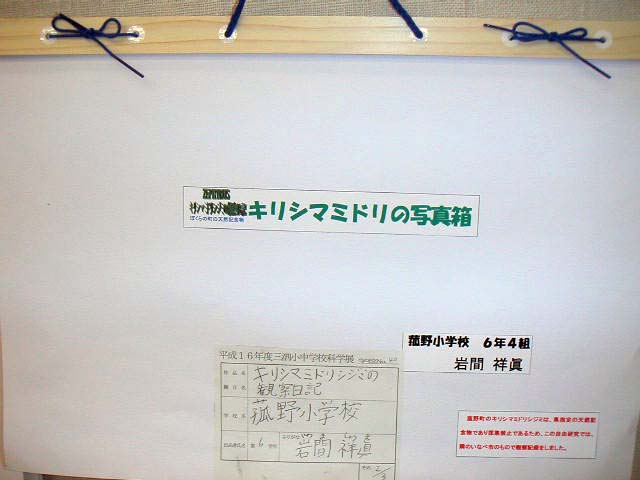 ぼくらの町の天然記念物
キリシマミドリの写真箱
菰野小学校 6年4組
岩間 祥眞
平成16年度三泗小中学校科学展
作品名
キリシマミドリシジミの
観察日記
学校名
菰野小学校
第 6 学年
岩間 祥眞
菰野町のキリシマミドリシジミは、県指定の天然記
念物であり採集禁止であるため、この自由研究では、
隣のいなべ市のもので観察記録をしました。